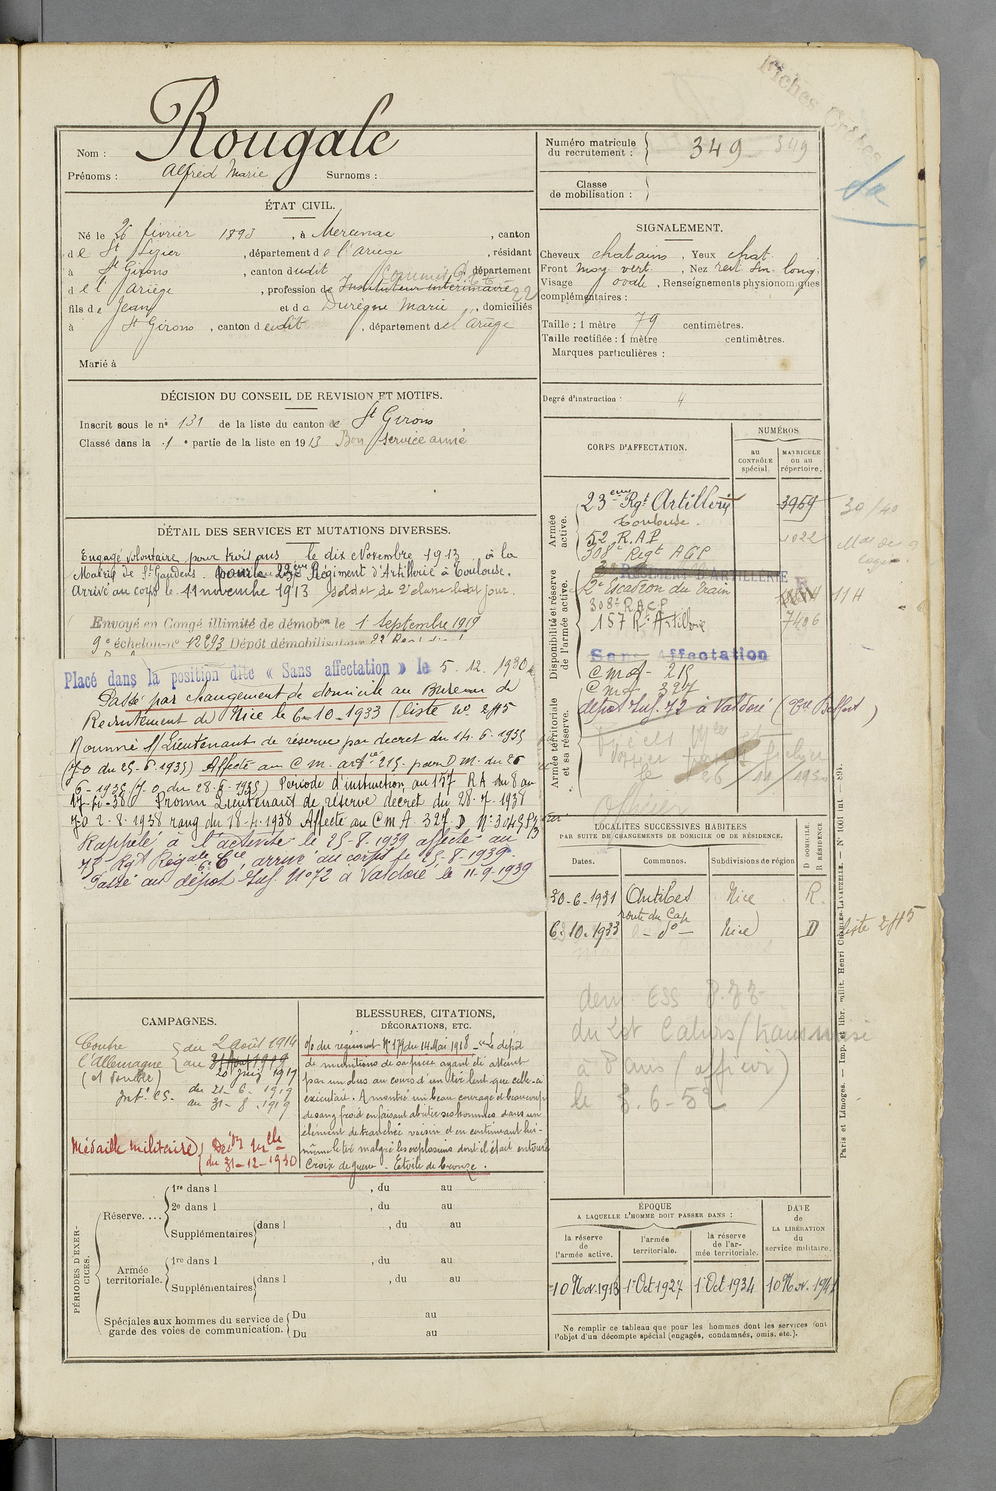 Fiches
Rougale
Nom :
Prénoms : Alfred Marie Surnoms :
Numéro matricule
du recrutement : 349 349
Classe
de mobilisation :
ÉTAT CIVIL.
Né le 26 février 1893, à Mercenac, canton
de St Lizier, département de l'Ariège, résidant
à St Girons, canton dudit, département
de l'Ariège, profession de Instituteur intérimaire 22
fils de Jean et de Durègne Marie, domiciliés
à St Girons, canton dudit, département de l'Ariège
Marié à
SIGNALEMENT.
Cheveux chatains, Yeux chat.
Front moy vert., Nez rect. sin. long.
Visage ovale, Renseignements physionomiques
complémentaires :
Taille : 1 mètre 79 centimètres.
Taille rectifiée : 1 mètre centimètres.
Marques particulières :
Degré d'instruction : 4
DÉCISION DU CONSEIL DE REVISION ET MOTIFS.
Inscrit sous le n° 131 de la liste du canton de St Girons
Classé dans la 1e partie de la liste en 1913 Bon service armé
CORPS D'AFFECTATION.
NUMÉROS
au
CONTRÔLE
spécial.
MATRICULE
ou au
répertoire.
Armée
active.
23ème Rgt Artillerie 3969 30/40
Toulouse.
52 R.A.P. 1022
308e Regt AGP
RÉGIMENT D'ARTILLERIE
Disponibilité et réserve
de l'armée active.
2e Escadron du Train 11 H
308e R.A.C.P
157 Rt Artillerie 7406
Sans Affectation
C m A 215
C m A 327
Armée territoriale
et sa réserve.
dépôt Inf. 72 à Valdoie (Tre Belfort)
DÉTAIL DES SERVICES ET MUTATIONS DIVERSES.
Engagé volontaire pour trois ans le dix Novembre 1913, à la
Mairie de St Gaudens pour le 23ème Régiment d'Artillerie à Toulouse.
Arrivé au corps le 11 novembre 1913 soldat de 2e classe ledit jour.
Envoyé en Congé illimité de démobon le 1 septembre 1919
9e échelon n° 12293 Dépôt démobilisateur
Placé dans la position dite « Sans affectation » le 5. 12. 1930
Passé par changement de domicile au Bureau de
Recrutement de Nice le 6-10-1933 (liste n° 245
Nommé S/Lieutenant de réserve par décret du 14-6-1935
(JO du 25-6-1935) Affecté au C.M. artie 215 par D.M. du 26
6-1935 (J.O. du 28-6-1935) Période d'instruction au 157 RA du 8 au
Promu Lieutenant de réserve décret du 28-7-1938
JO 2-8-1938 rang du 18-4-1938 Affecté au C M A 327
Rappelé à l'activité le 25-8-1939 affecté au
arrivé au corps le 25-8-1939.
Passé au dépôt Inf. N° 72 à Valdoie le 11-9-1939
LOCALITÉS SUCCESSIVES HABITÉES
PAR SUITE DE CHANGEMENTS DE DOMICILE OU DE RÉSIDENCE.
Dates. Communes. Subdivisions de région
D DOMICILE.
R RÉSIDENCE
30-6-1931 Antibes Nice R.
route du Cap
6-10-1933 - do - Nice D liste 245
le 3.6-52
CAMPAGNES.
Contre
l'Allemagne
du 2 août 1914
au 31 Août 1919
20 juin 1919
Int. CS. du 21-6-1919
au 31-8-1919
Médaille militaire
du 31-12-1930
BLESSURES, CITATIONS,
DÉCORATIONS, ETC.
O/ du régiment N° 174 du 14 Mai 1918 - Le dépôt
de munitions de sa pièce ayant été atteint
par un obus au cours d'un tir lent que celle-ci
exécutait. A montré un beau courage et beaucoup
de sang froid en faisant abriter ses hommes dans un
élément de tranchée voisin et en continuant lui-
même le tir malgré les explosions dont il était entouré
Croix de guerre - Étoile de bronze.
PÉRIODES D'EXERCICES.
Réserve....
1re dans l , du au
2e dans l , du au
Supplémentaires dans l , du au
Armée
territoriale.
1re dans l , du au
Supplémentaires dans l , du au
Spéciales aux hommes du service de
garde des voies de communication.
Du au
Du au
ÉPOQUE
A LAQUELLE L'HOMME DOIT PASSER DANS :
la réserve
de
l'armée active.
l'armée
territoriale.
la réserve
de l'ar-
mée territoriale.
DATE
de
LA LIBÉRATION
du
service militaire.
10 Nov. 1916 1er Oct 1927 1er Oct 1934 10 Nov. 1941
Ne remplir ce tableau que pour les hommes dont les services font
l'objet d'un décompte spécial (engagés, condamnés, omis, etc.).
Paris et Limoges. — Imp. et libr. milit. Henri CHARLES-LAVAUZELLE. — N° 1001 int — 891.